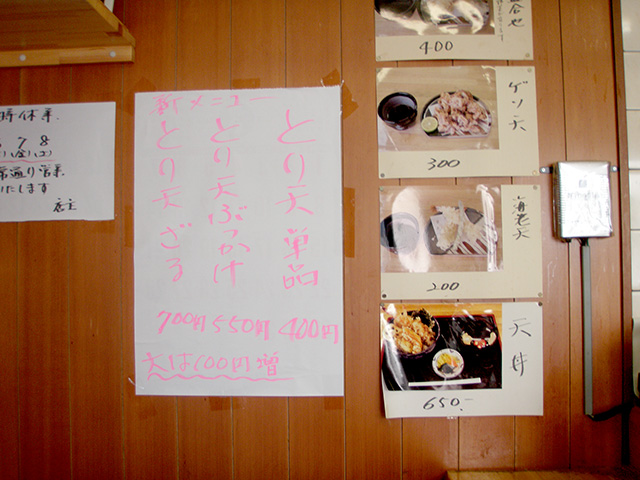 新メニュー
とり天 単品
とり天ぶっかけ
とり天ざる
700円 550円 400円
大は100円増
400
ゲソ天
300
海老天
200
天丼
650.-
時休業
7 8
通り営業
いたします
店主